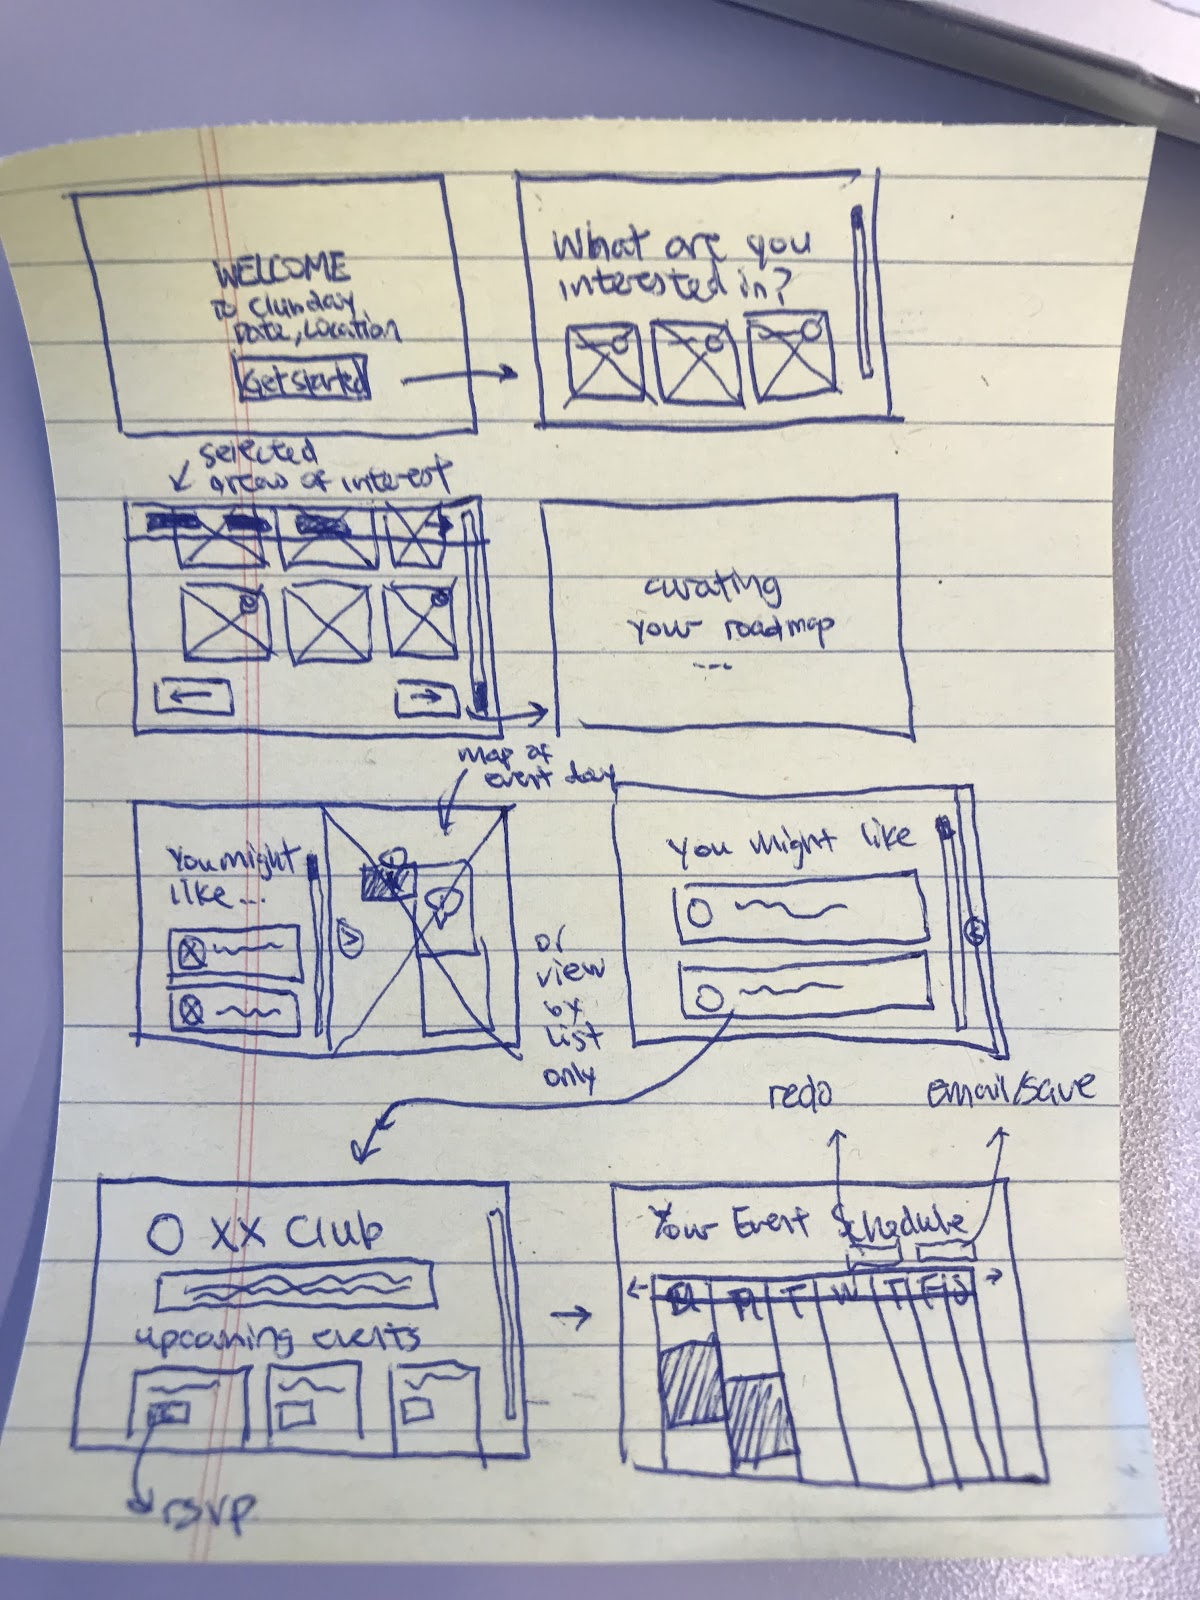 WELCOME
to Clubday
Date, Location
Get started
What are you
interested in?
selected
areas of interest
curating
your roadmap
...
map of
event day
You might
like...
or
view
by
list
only
You might like
redo
email/save
XX Club
upcoming events
rsvp
Your Event Schedule
M T W T F S